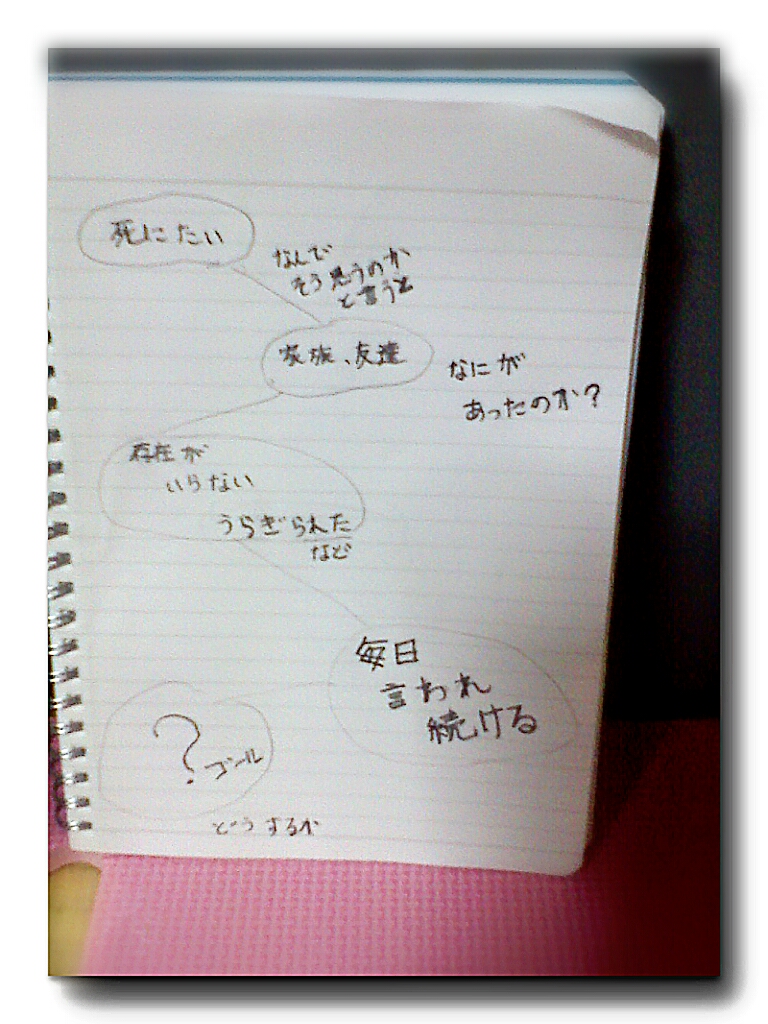 死にたい
なんで
そう思うのか
と言うと
家族、友達
なにが
あったのか?
存在が
いらない
うらぎられた
など
毎日
言われ
続ける
?
ゴール
どうするか